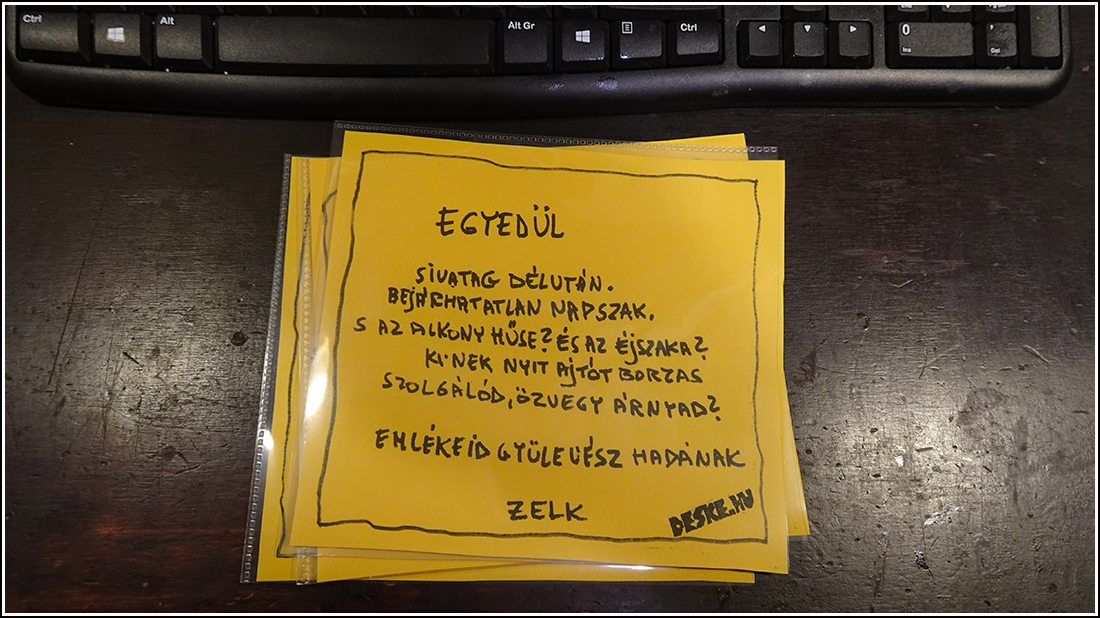 Ctrl
Alt
Alt Gr
Ctrl
0
Ins
Del
EGYEDÜL
SIVATAG DÉLUTÁN.
BEJÁRHATATLAN NAPSZAK.
S AZ ALKONY HŰSE? ÉS AZ ÉJSZAKA?
KINEK NYIT AJTÓT BORZAS
SZOLGÁLÓD, ÖZVEGY ÁRNYAD?
EMLÉKEID GYÜLEVÉSZ HADÁNAK
ZELK
DESKE.HU